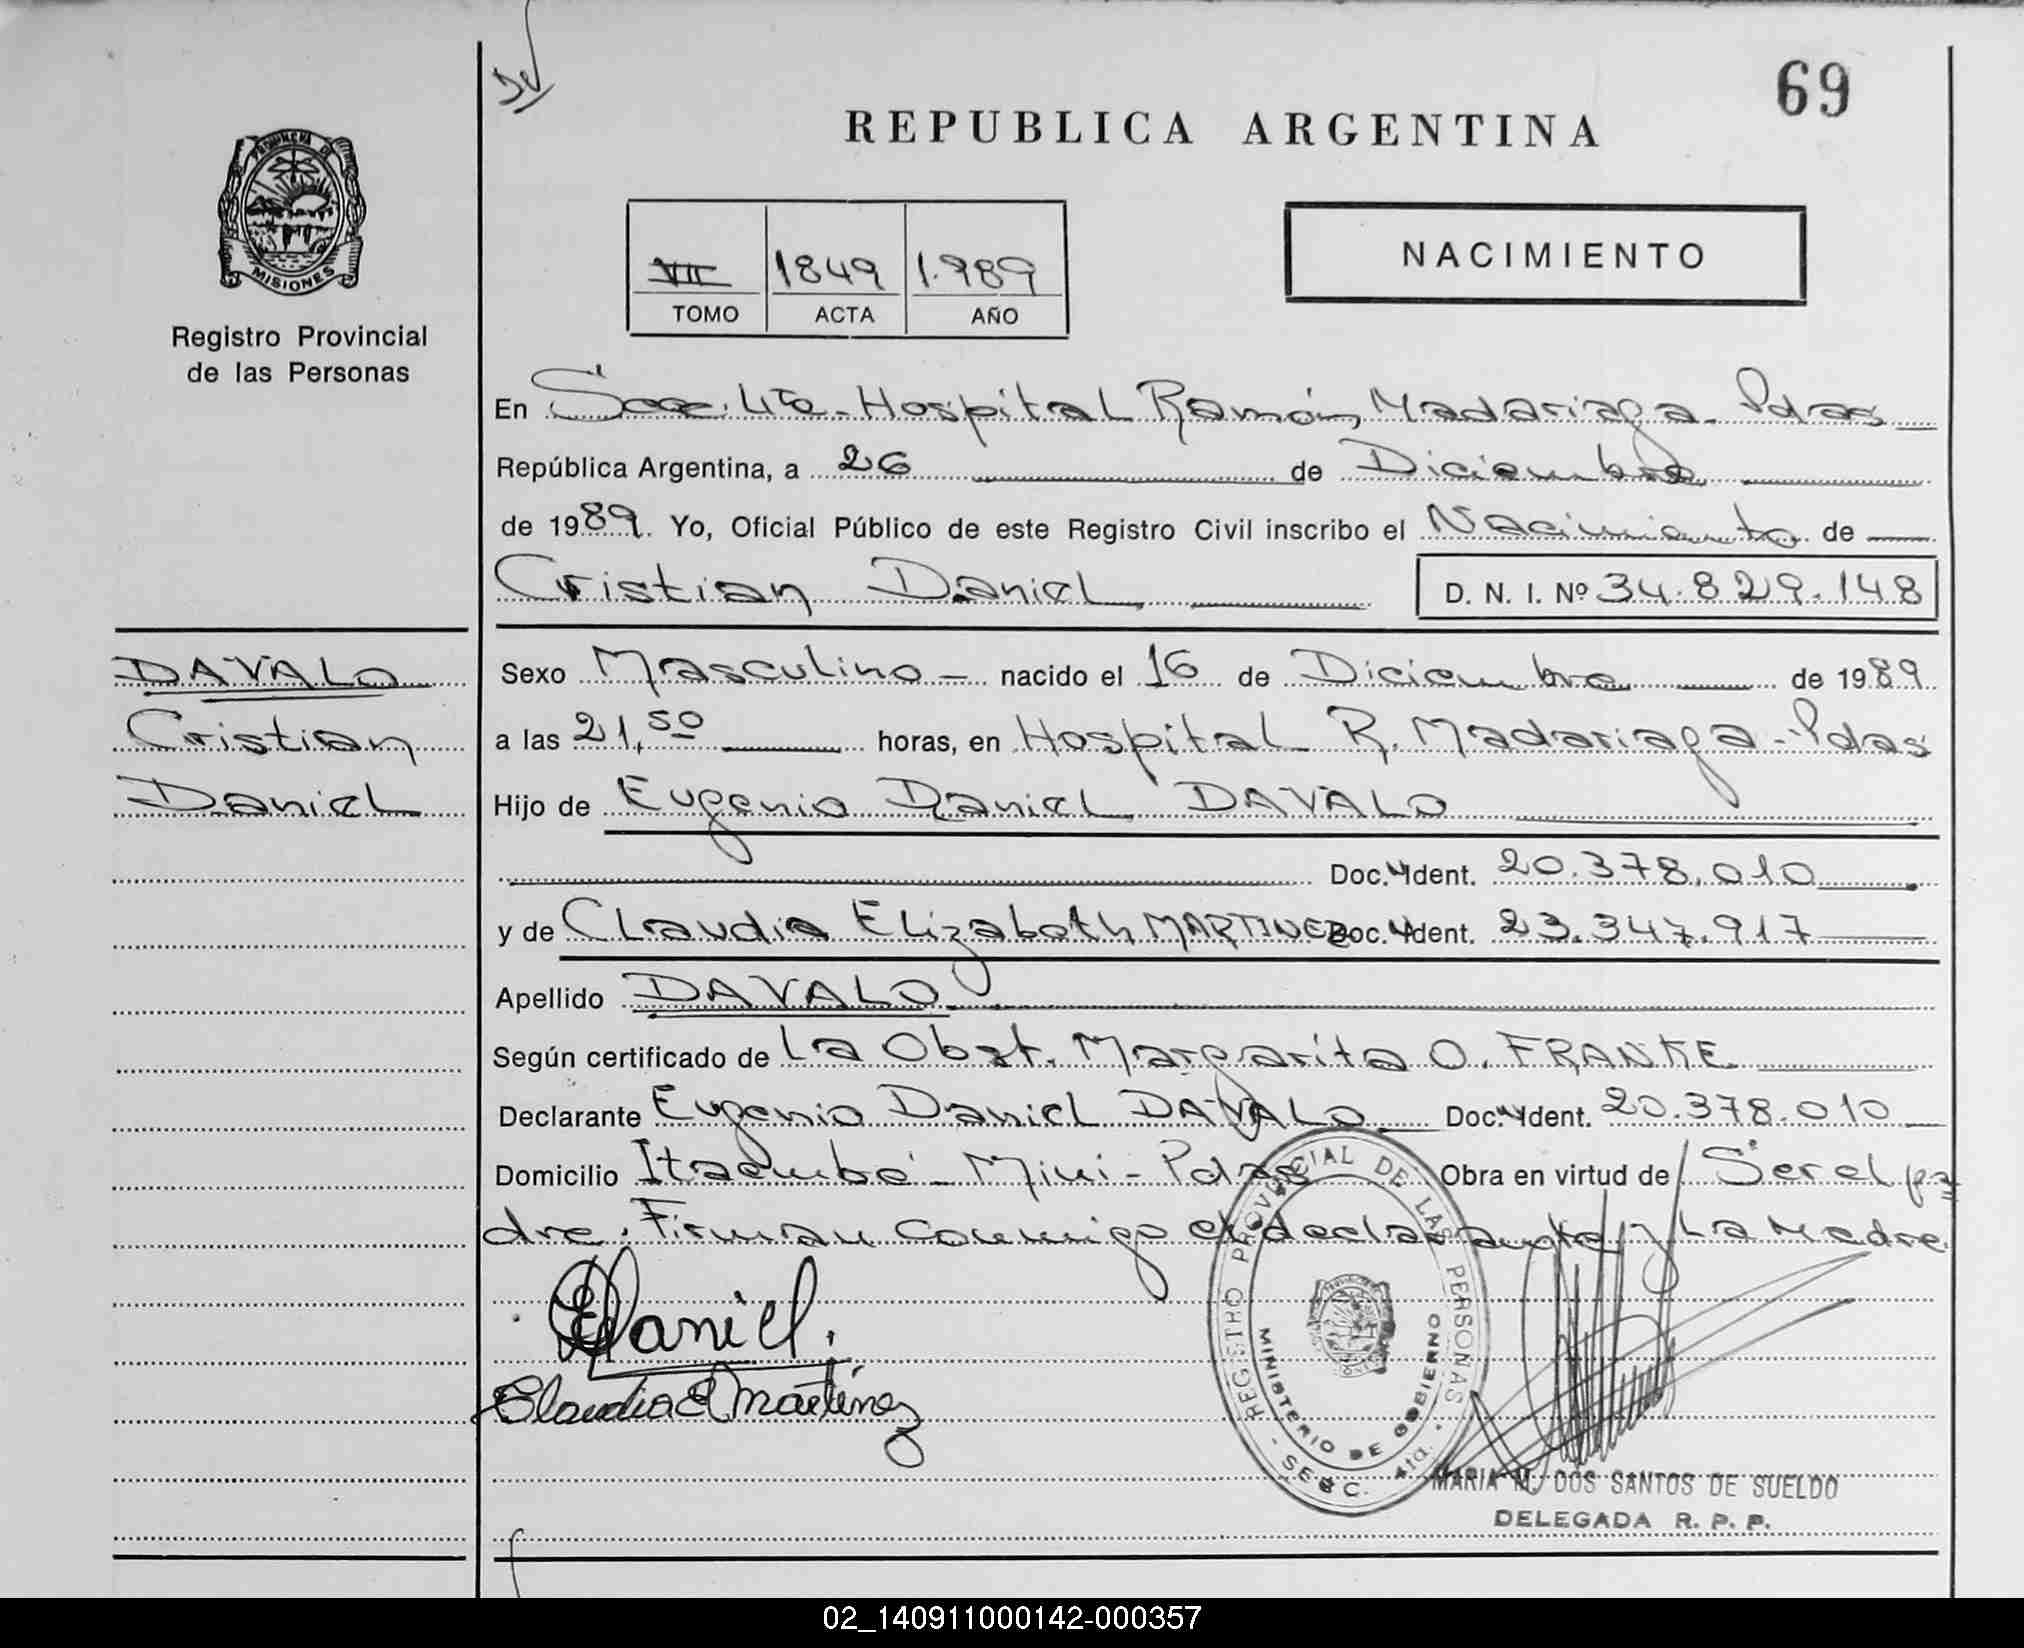 69
REPUBLICA ARGENTINA
PROVINCIA DE
MISIONES
Registro Provincial
de las Personas
VII 1849 1.989
TOMO ACTA AÑO
NACIMIENTO
En Secc. 4ta. Hospital Ramón Madariaga - Pdas
República Argentina, a 26 de Diciembre
de 1989. Yo, Oficial Público de este Registro Civil inscribo el Nacimiento de
Cristian Daniel D. N. I. Nº 34.829.148
DAVALO
Cristian
Daniel
Sexo Masculino - nacido el 16 de Diciembre de 1989
a las 21,50 horas, en Hospital R. Madariaga - Pdas
Hijo de Eugenio Daniel DAVALO
Doc. Ident. 20.378.010
y de Claudia Elizabeth MARTINEZ Doc. Ident. 23.347.917
Apellido DAVALO
Según certificado de La Obst. Margarita O. FRANKE
Declarante Eugenio Daniel DAVALO Doc. Ident. 20.378.010
Domicilio Itaembé - Mini - Pdas Obra en virtud de Ser el pa
dre. Firman conmigo el declarante y La Madre
EDaniel.
Claudia E Martínez
REGISTRO PROVINCIAL DE LAS PERSONAS
MINISTERIO DE GOBIERNO
- SECC. 4ta. -
MARIA M. DOS SANTOS DE SUELDO
DELEGADA R. P. P.
02_140911000142-000357